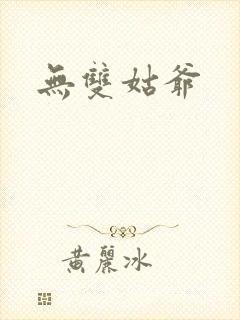 無雙姑爺
黃麗冰